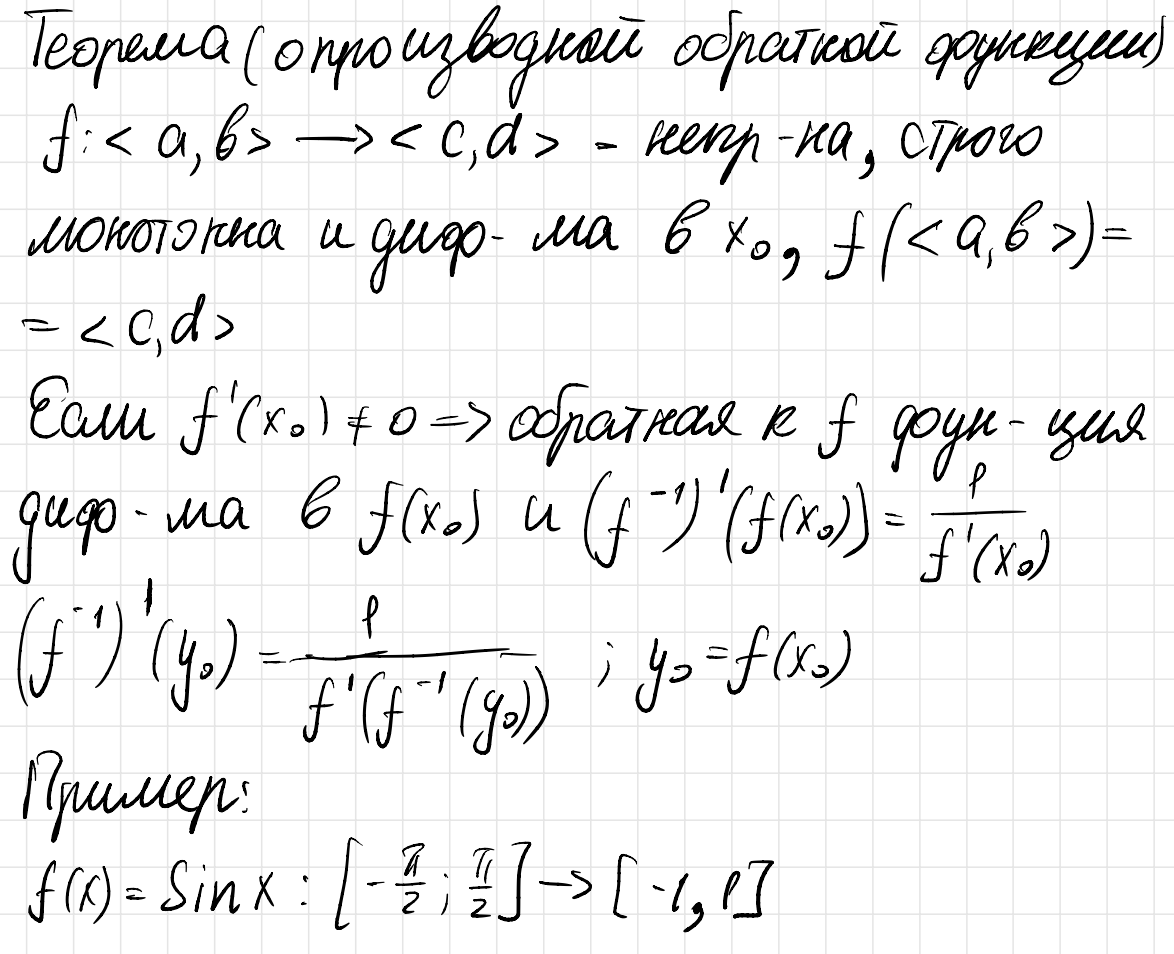 Теорема (о производной обратной функции)
f: < a, b > ⟶ < c, d > - непр-на, строго
монотонна и диф-ма в x₀, f(< a, b >) =
= < c, d >
Если f'(x₀) ≠ 0 => обратная к f фун-ция
диф-ма в f(x₀) и (f⁻¹)'(f(x₀)) = 1/f'(x₀)
(f⁻¹)'(y₀) = 1/f'(f⁻¹(y₀)) ; y₀ = f(x₀)
Пример:
f(x) = Sin x : [-π/2; π/2] → [-1, 1]